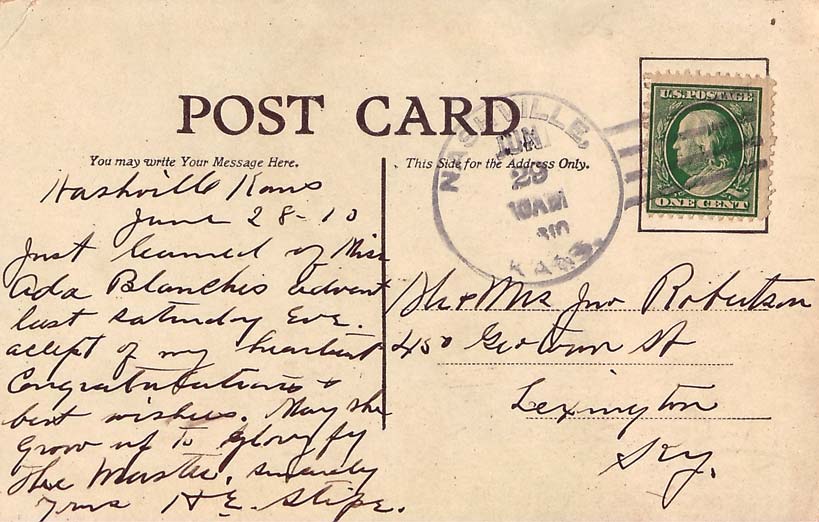 POST CARD
You may write Your Message Here.
This Side for the Address Only.
NASHVILLE,
JUN
29
10AM
KANS.
U.S. POSTAGE
ONE CENT
Nashville Kans
June 28-10
Just learned of Miss
Ada Blanchis advent
last Saturday Eve.
accept of my heartiest
Congratulations &
best wishes. May she
Grow up to glorify
the Master. Sincerely
Yours H E Stipe.
Mr & Mrs Jno Robertson
450 Geotown St
Lexington
Ky.